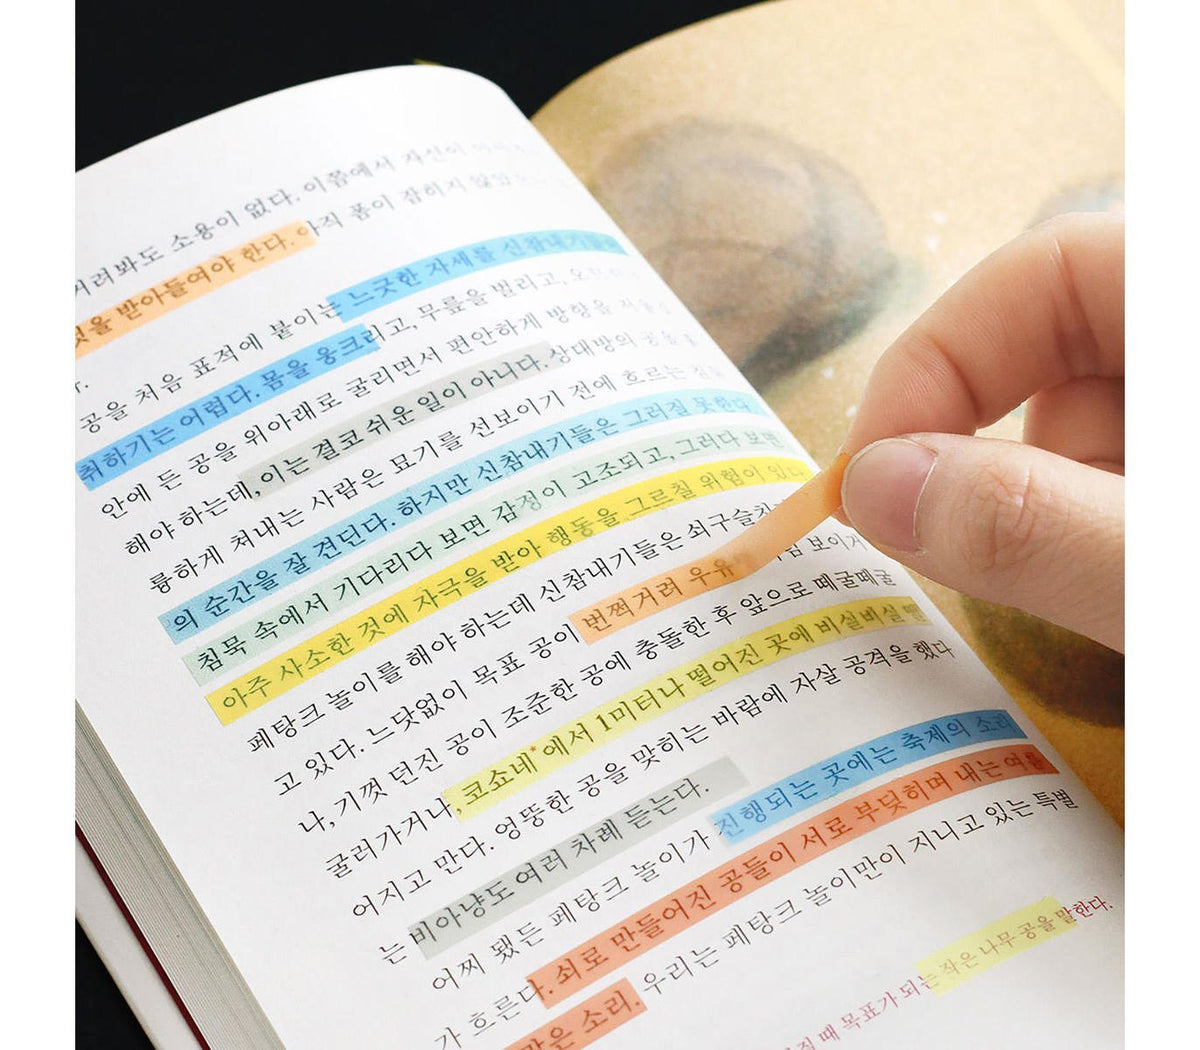 거려봐도 소용이 없다. 이쯤에서 자신이
것을 받아들여야 한다. 아직 폼이 잡히지 않았
다.
공을 처음 표적에 붙이는 느긋한 자세를 신참내기들이
취하기는 어렵다. 몸을 웅크리고, 무릎을 벌리고,
안에 든 공을 위아래로 굴리면서 편안하게 방향을
해야 하는데, 이는 결코 쉬운 일이 아니다. 상대방의 공을
륭하게 쳐내는 사람은 묘기를 선보이기 전에 흐르는
의 순간을 잘 견딘다. 하지만 신참내기들은 그러질 못한다.
침묵 속에서 기다리다 보면 감정이 고조되고, 그러다 보면
아주 사소한 것에 자극을 받아 행동을 그르칠 위험이 있다
페탕크 놀이를 해야 하는데 신참내기들은 쇠구슬치
고 있다. 느닷없이 목표 공이 번쩍거려 우유 보이거
나, 기껏 던진 공이 조준한 공에 충돌한 후 앞으로 떼굴떼굴
굴러가거나, 코쇼네*에서 1미터나 떨어진 곳에 비실비실
어지고 만다. 엉뚱한 공을 맞히는 바람에 자살 공격을 했다
는 비아냥도 여러 차례 듣는다.
어찌 됐든 페탕크 놀이가 진행되는 곳에는 축제의 소리
가 흐른다. 쇠로 만들어진 공들이 서로 부딪히며 내는 여름
같은 소리. 우리는 페탕크 놀이만이 지니고 있는 특별
질 때 목표가 되는 작은 나무 공을 말한다.